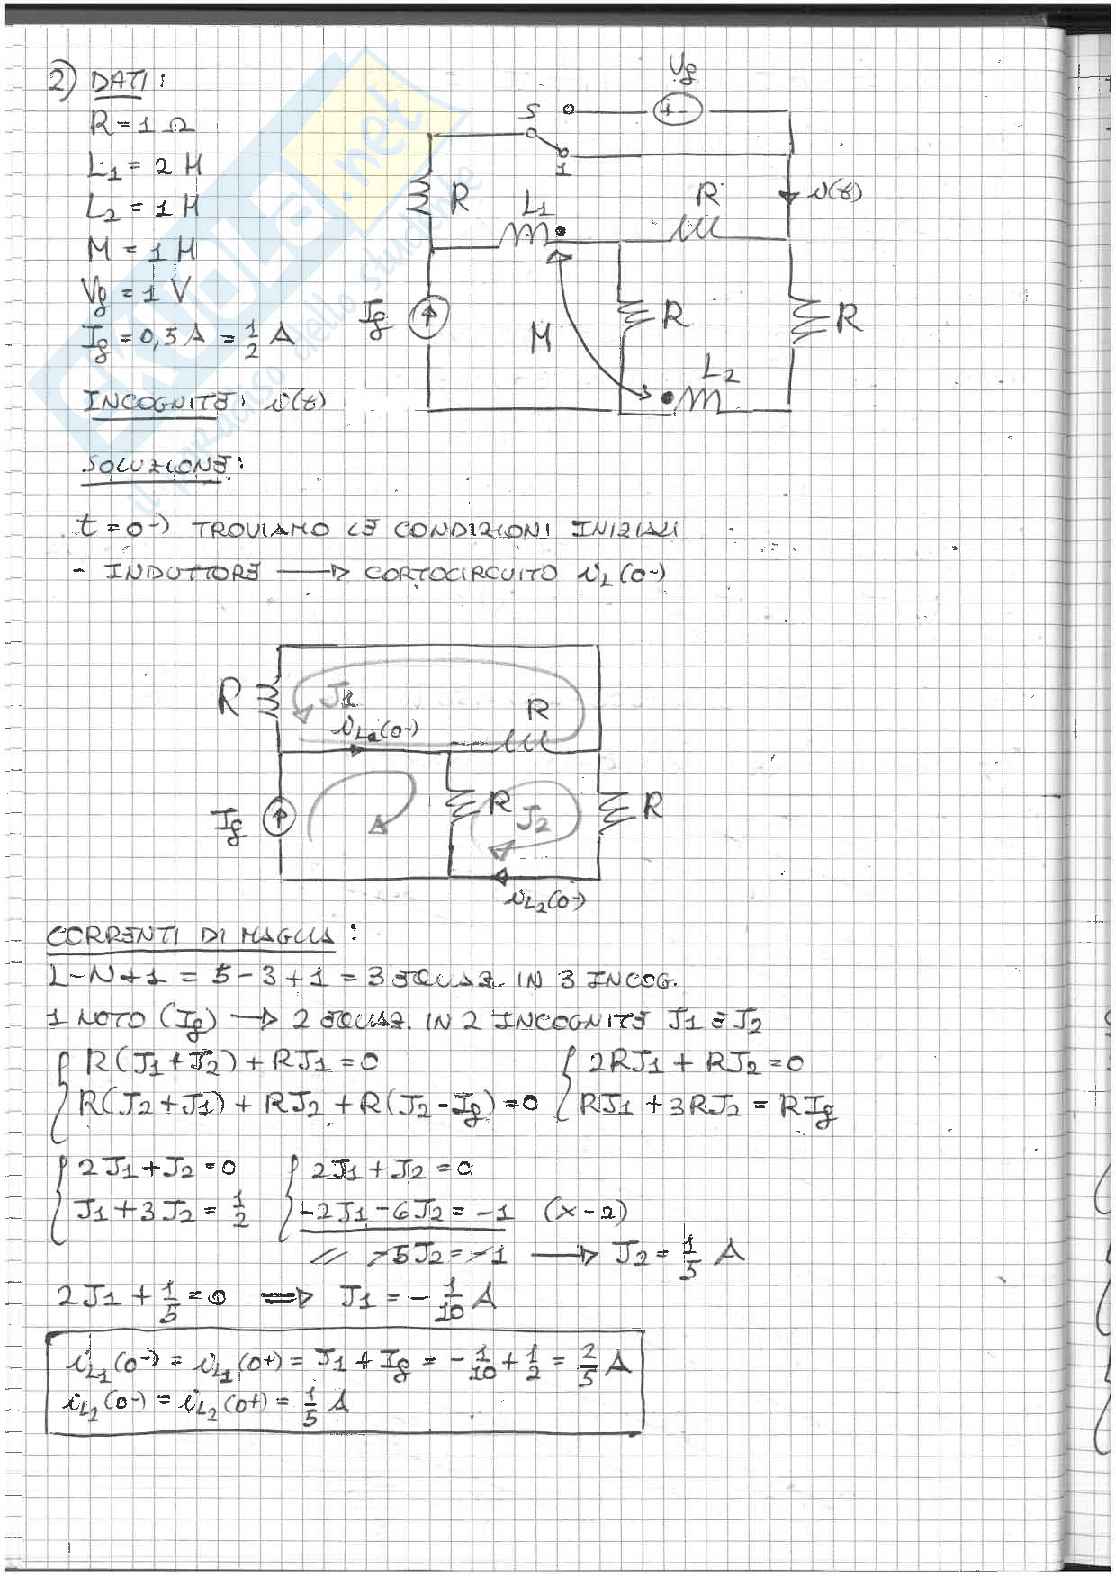 2) DATI:
R = 1 Ω
L1 = 2 H
L2 = 1 H
M = 1 H
Vg = 1 V
Ig = 0,5 A = 1/2 A
INCOGNITE: i(t)
Vg
+ -
S
1
R
L1
R
i(t)
Ig
M
R
R
L2
SOLUZIONE:
t = 0-) TROVIAMO LE CONDIZIONI INIZIALI
- INDUTTORE → CORTOCIRCUITO iL(0-)
R
J1
R
iL1(0-)
Ig
R
J2
R
iL2(0-)
CORRENTI DI MAGLIA:
L-N+1 = 5-3+1 = 3 EQUAZ. IN 3 INCOG.
1 NOTO (Ig) → 2 EQUAZ. IN 2 INCOGNITE J1 E J2
{ R(J1+J2) + RJ1 = 0 { 2RJ1 + RJ2 = 0
R(J2+J1) + RJ2 + R(J2-Ig) = 0 RJ1 + 3RJ2 = RIg
{ 2J1 + J2 = 0 { 2J1 + J2 = 0
J1 + 3J2 = 1/2 -2J1 - 6J2 = -1 (x-2)
// -5J2 = -1 → J2 = 1/5 A
2J1 + 1/5 = 0 ⇒ J1 = -1/10 A
iL1(0-) = iL1(0+) = J1 + Ig = -1/10 + 1/2 = 2/5 A
iL2(0-) = iL2(0+) = 1/5 A
SKUOLA.net
il paradiso dello studente